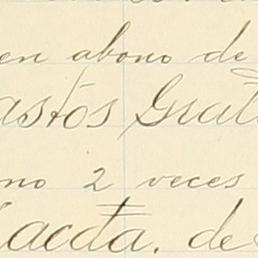 en abono de
astos Grat
no 2 veces
acta. de